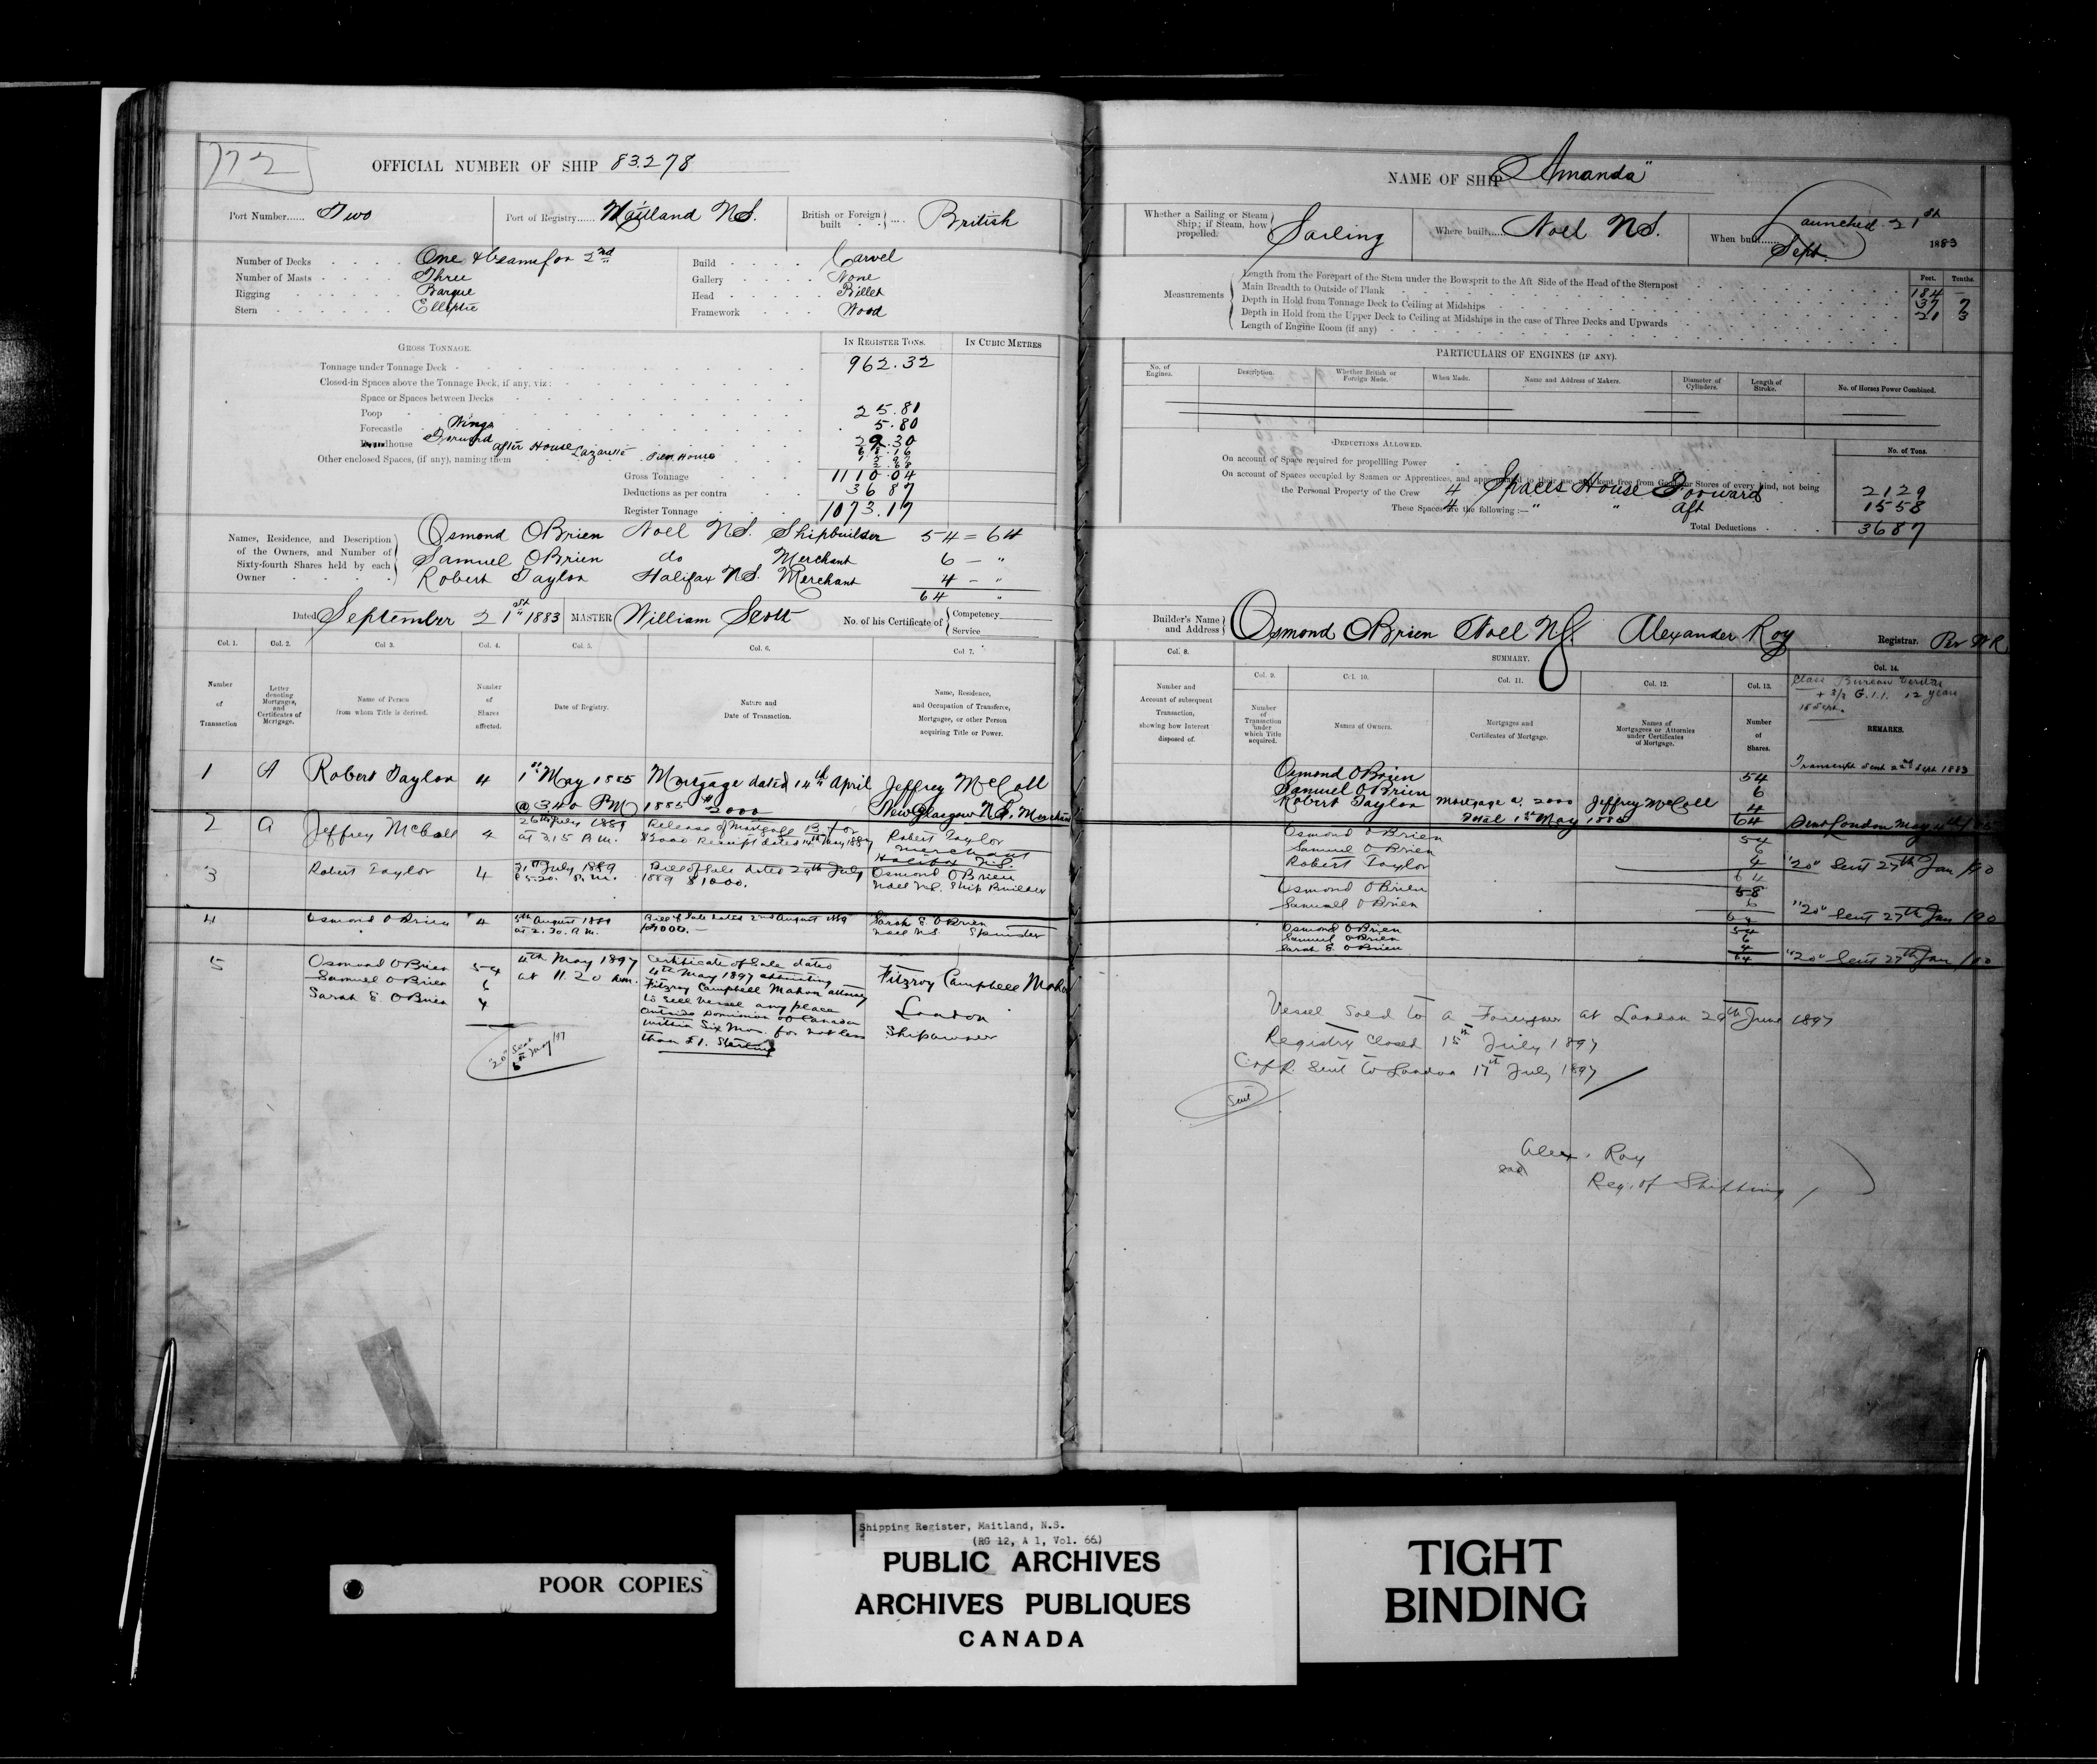 172
OFFICIAL NUMBER OF SHIP 83.278
Port Number...... Two
Port of Registry...... Maitland N.S.
British or Foreign built .... British
Number of Decks One & beams for 2nd
Number of Masts Three
Rigging Barque
Stern Elliptic
Build Carvel
Gallery None
Head Billet
Framework Wood
GROSS TONNAGE.
IN REGISTER TONS.
IN CUBIC METRES
Tonnage under Tonnage Deck 962.32
Closed-in Spaces above the Tonnage Deck, if any, viz:
Space or Spaces between Decks
Poop 25.81
Forecastle Wings 5.80
Roundhouse Forward 29.30
Other enclosed Spaces, (if any), naming them After House Lazarette
Gross Tonnage 1110.04
Deductions as per contra 36 87
Register Tonnage 1073.17
Names, Residence, and Description of the Owners, and Number of Sixty-fourth Shares held by each Owner
Osmond OBrien Noel N.S. Shipbuilder 54 = 64
Samuel OBrien do Merchant 6 - "
Robert Taylor Halifax N.S. Merchant 4 - "
64 "
Dated September 21st 1883 MASTER William Scott No. of his Certificate of { Competency Service
Col. 1. Col. 2. Col 3. Col. 4. Col. 5. Col. 6. Col 7.
Number of Transaction
Letter denoting Mortgages, and Certificates of Mortgage.
Name of Person from whom Title is derived.
Number of Shares affected.
Date of Registry.
Nature and Date of Transaction.
Name, Residence, and Occupation of Transferee, Mortgagee, or other Person acquiring Title or Power.
1 A Robert Taylor 4 1st May 1885 Mortgage dated 14th April Jeffrey McColl
@ 3 40 PM 1885 $2000 New Glasgow N.S. Merchant
2 A Jeffrey McColl 4 26th July 1889 Release of Mortgage Robert Taylor
at 3.15 A.M. $2000 Receipt dated 14th May 1887 Merchant
Halifax N.S.
3 Robert Taylor 4 31st July 1889 Bill of Sale dated 29th July Osmond OBrien
5.20. P.M. 1889 $1000. Noel N.S. Ship Builder
4 Osmond OBrien 4 5th August 1889 Bill of Sale dated 2nd August 1889 Sarah E OBrien
at 2.30. A.M. $1000.— Noel N.S. Spinster
5 Osmond OBrien 54 4th May 1897 Certificate of Sale dated Fitzroy Campbell Mahon
Samuel OBrien 6 at 11.20 A.M. 4th May 1897
Sarah E OBrien 4 Fitzroy Campbell Mahon attorney London
to sell Vessel any place Shipowner
outside Dominion of Canada
within Six Mos. for not less
than £1. Sterling
"20" Sent 5th May /97
NAME OF SHIP "Amanda"
Whether a Sailing or Steam Ship; if Steam, how propelled. Sailing
Where built...... Noel N.S.
When built...... Launched 21st Sept. 1883
Measurements
Feet. Tenths.
Length from the Forepart of the Stem under the Bowsprit to the Aft Side of the Head of the Sternpost 184 —
Main Breadth to Outside of Plank 37 7
Depth in Hold from Tonnage Deck to Ceiling at Midships 21 3
Depth in Hold from the Upper Deck to Ceiling at Midships in the case of Three Decks and Upwards
Length of Engine Room (if any)
PARTICULARS OF ENGINES (IF ANY).
No. of Engines. Description. Whether British or Foreign Made. When Made. Name and Address of Makers. Diameter of Cylinders. Length of Stroke. No. of Horses Power Combined.
DEDUCTIONS ALLOWED.
No. of Tons.
On account of Space required for propelling Power
On account of Spaces occupied by Seamen or Apprentices, and appropriated to their use, and kept free from Goods or Stores of every kind, not being
the Personal Property of the Crew 4 Spaces House Forward 21 29
These Spaces are the following:— 4 " " Aft 15 58
Total Deductions 36 87
Builder's Name and Address Osmond OBrien Noel N.S. Alexander Roy Registrar. Per
Col. 8. SUMMARY. Col. 14.
Col. 9. Col. 10. Col. 11. Col. 12. Col. 13.
Number and Account of subsequent Transaction, showing how Interest disposed of.
Number of Transaction under which Title acquired.
Names of Owners.
Mortgages and Certificates of Mortgage.
Names of Mortgagees or Attornies under Certificates of Mortgage.
Number of Shares.
Class Bureau Veritas
12 years
REMARKS.
Transcript sent 22nd Sept 1883
Osmond OBrien 54
Samuel OBrien 6
Robert Taylor Mortgage A. 2000 Jeffrey McColl 4
1st May 1885 64 Sent London May
Osmond OBrien 54
Samuel OBrien 6
Robert Taylor 4 "20" Sent 27th Jan /90
64
Osmond OBrien 58
Samuel OBrien 6
64 "20" Sent 27th Jan /90
Osmond OBrien 54
Samuel OBrien 6
Sarah E. OBrien 4
64 "20" Sent 27th Jan /90
Vessel Sold to a Foreigner at London 29th June 1897
Registry Closed 15th July 1897
C of R. Sent to London 17th July 1897
Sent
Alex. Roy
Reg. of Shipping
POOR COPIES
Shipping Register, Maitland, N.S.
(RG 12, A 1, Vol. 66)
PUBLIC ARCHIVES
ARCHIVES PUBLIQUES
CANADA
TIGHT
BINDING